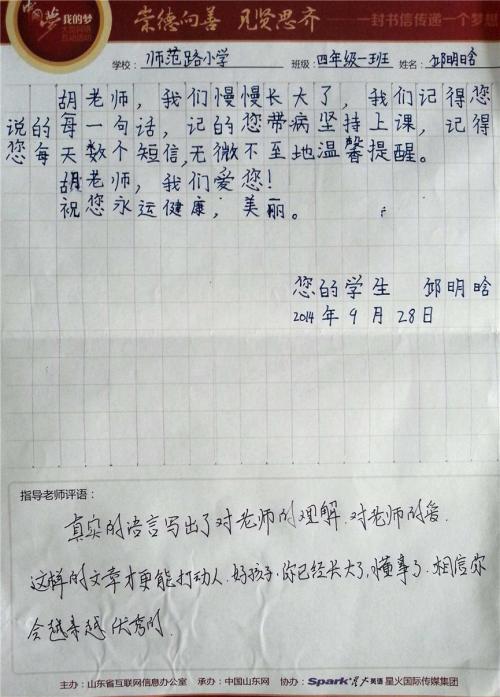 中国梦 我的梦
大型网络
互动活动
崇德向善 见贤思齐
一封书信传递一个梦想
学校：师范路小学 班级：四年级一班 姓名：邱明晗
胡老师，我们慢慢长大了，我们记得您
说的每一句话，记的您带病坚持上课，记得
您每天数个短信，无微不至地温馨提醒。
胡老师，我们爱您！
祝您永远健康，美丽。
您的学生 邱明晗
2014年9月28日
指导老师评语：
真实的语言写出了对老师的理解，对老师的爱，
这样的文章才更能打动人，好孩子，你已经长大了，懂事了，相信你
会越来越优秀的，
主办：山东省互联网信息办公室 承办：中国山东网 协办：Spark星火英语 星火国际传媒集团